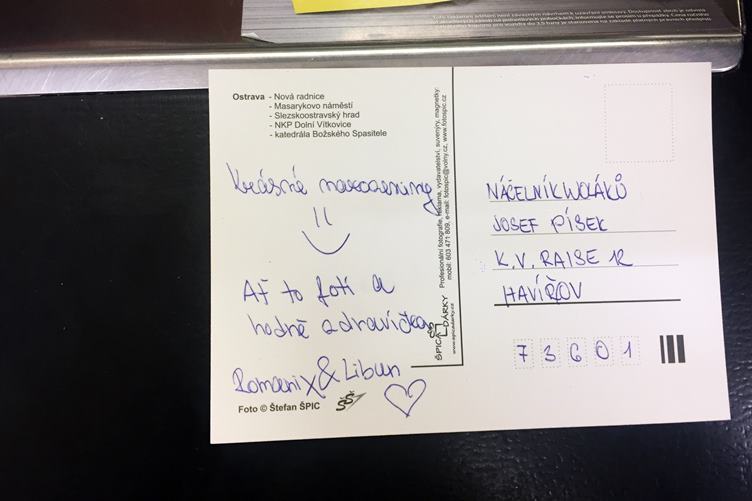 Ostrava - Nová radnice
- Masarykovo náměstí
- Slezskoostravský hrad
- NKP Dolní Vítkovice
- katedrála Božského Spasitele
Krásné narozeniny
Ať to fotí a
hodně zdravíčka
Romanix & Libun
Foto © Štefan ŠPIC
ŠPICA DÁRKY
www.spicadarky.cz
Profesionální fotografie, reklama, vydavatelství, suvenýry, magnetky:
mobil: 603 471 809, e-mail: fotospic@volny.cz, www.fotospic.cz
NÁČELNÍK
JOSEF PÍSEK
K.V. RAISE 12
HAVÍŘOV
7 3 6 0 1